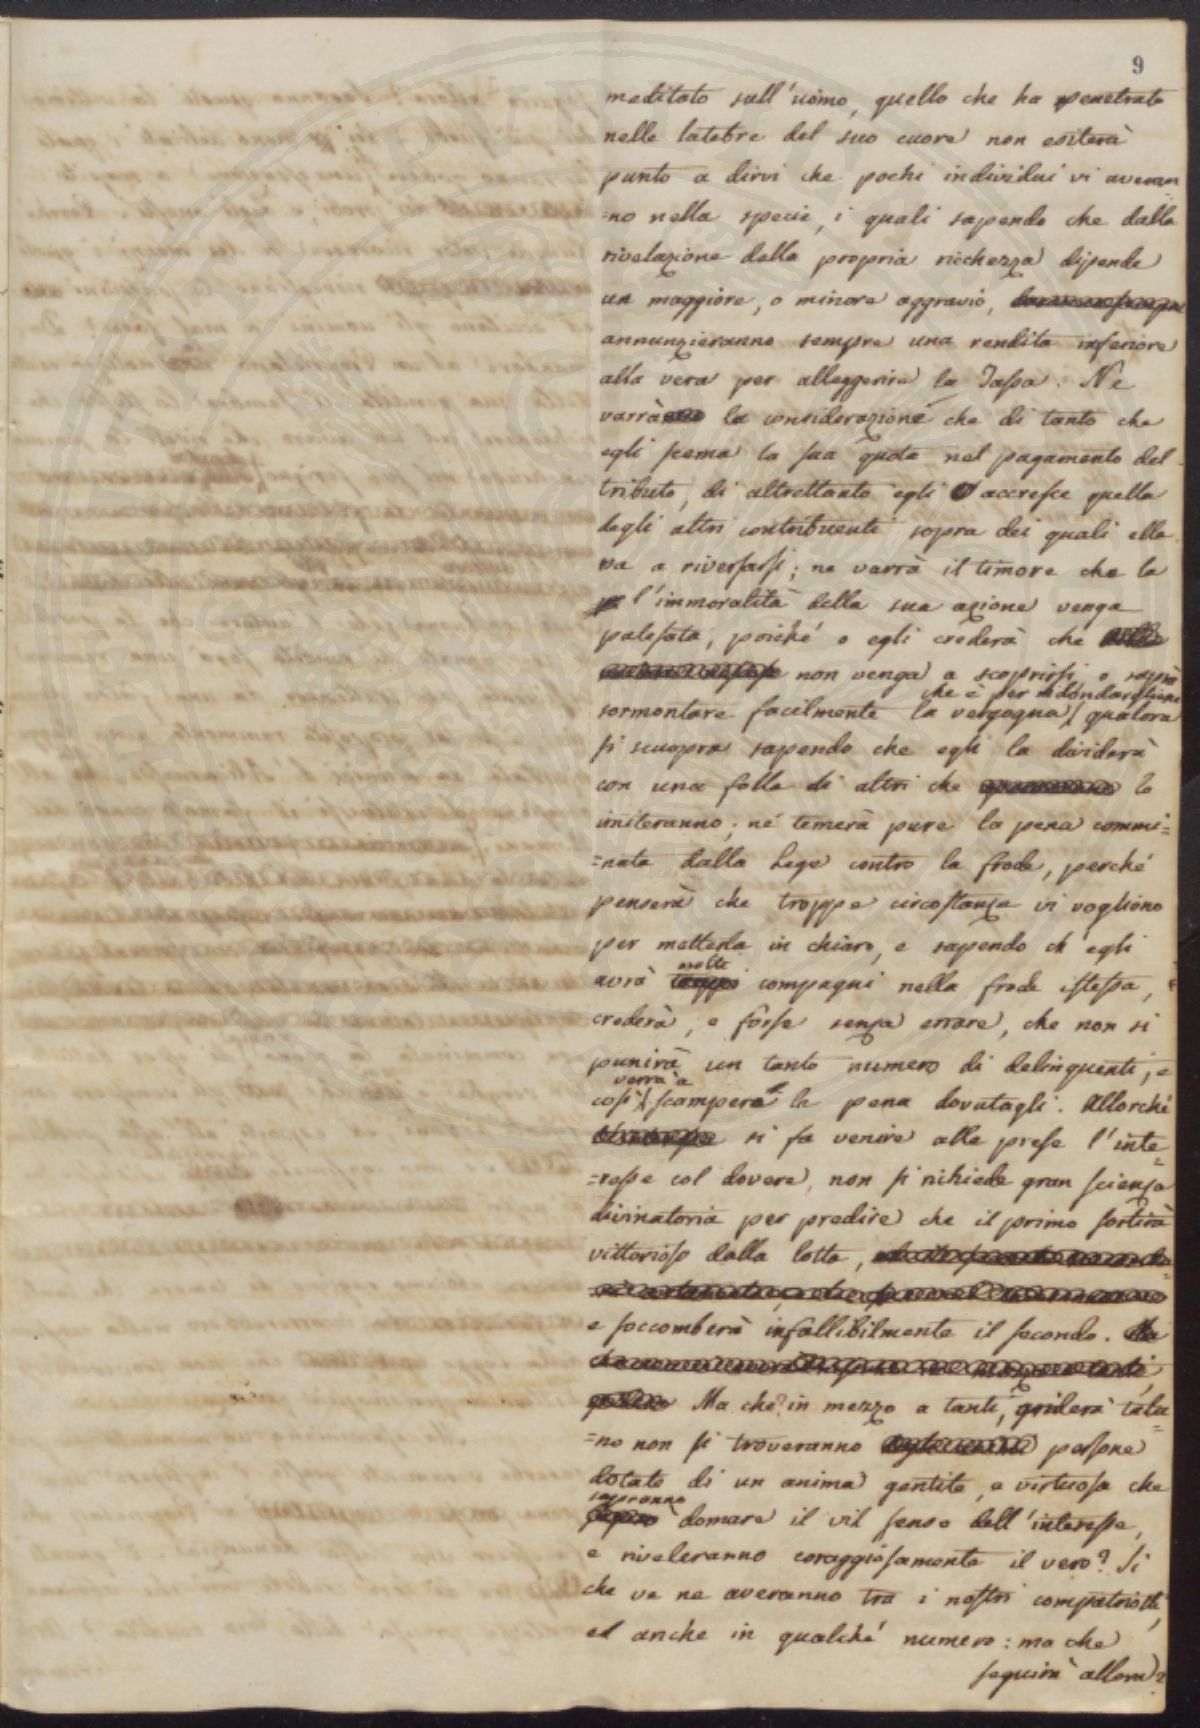 9
meditato sull'uomo, quello che ha penetrato
nelle latebre del suo cuore non esiterà
punto a dirvi che pochi individui vi averan
=no nella specie, i quali sapendo che dalla
rivelazione della propria ricchezza dipende
un maggiore, o minore aggravio,
annunzieranno sempre una rendita inferiore
alla vera per alleggerire la Tassa. Ne
varrà la considerazione che di tanto che
egli scema la sua quota nel pagamento del
tributo, di altrettanto egli accresce quella
degli altri contribuenti sopra dei quali ella
va a riversarsi; ne varrà il timore che la
l'immoralità della sua azione venga
palesata, poiché o egli crederà che
non venga a scoprirsi, o saprà
che è per ridondargliene
sormontare facilmente la vergogna qualora
si scuopra sapendo che egli la dividerà
con una folla di altri che lo
imiteranno; né temerà pure la pena commi=
=nata dalla Lege contro la frode, perché
penserà che troppe circostanze vi vogliono
per metterla in chiaro, e sapendo ch egli
molti
avrà troppi compagni nella frode istessa,
crederà, e forse senza errare, che non si
punirà un tanto numero di delinquenti, e
verrà a
così scampare la pena dovutagli. Allorché
si fa venire alle prese l'inte=
=resse col dovere, non si richiede gran scienza
divinatoria per predire che il primo sortirà
vittorioso dalla lotta,
e soccomberà infallibilmente il secondo. Ma
Ma che? in mezzo a tanti, griderà talu=
=no non si troveranno persone
dotate di un anima gentile, e virtuosa che
sapranno
domare il vil senso dell'interesse,
e riveleranno coraggiosamente il vero? Si
che ve ne averanno tra i nostri compatriotti,
ed anche in qualché numero: ma che
seguirà allora?